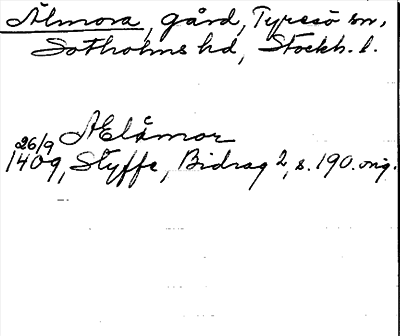 Älmora, gård, Tyresö sn,
Sotholms hd, Stockh. l.
Ælåmor
26/9
1409, Styffe, Bidrag 2, s. 190. orig.